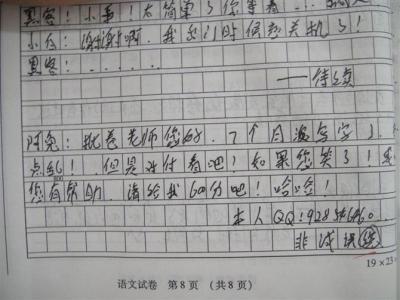 黑客：小白！太简单了你等着
小白：谢谢啊，我出门时候忘关机了！
黑客：......
——待续
阿免：批卷老师您好，7个月没写字了，
点乱！但是对付看吧！如果您笑了！
您有帮助，请给我600分吧！哈哈！
800
本人QQ：928
非诚误
语文试卷 第8页 （共8页）
19×23